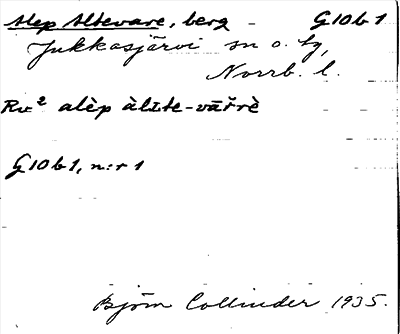 Alep Altevare, berg - G10b1
Jukkasjärvi sn o. tg,
Norrb. l.
Rv² alèp àlte-vāřrè
G10b1, n:r 1
Björn Collinder 1935.